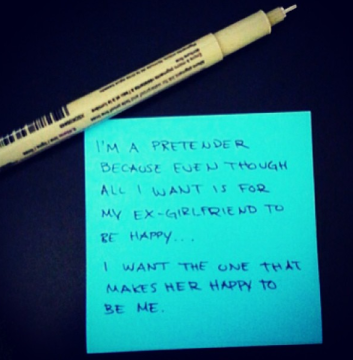 I'M A PRETENDER
BECAUSE EVEN THOUGH
ALL I WANT IS FOR
MY EX-GIRLFRIEND TO
BE HAPPY...
I WANT THE ONE THAT
MAKES HER HAPPY TO
BE ME.